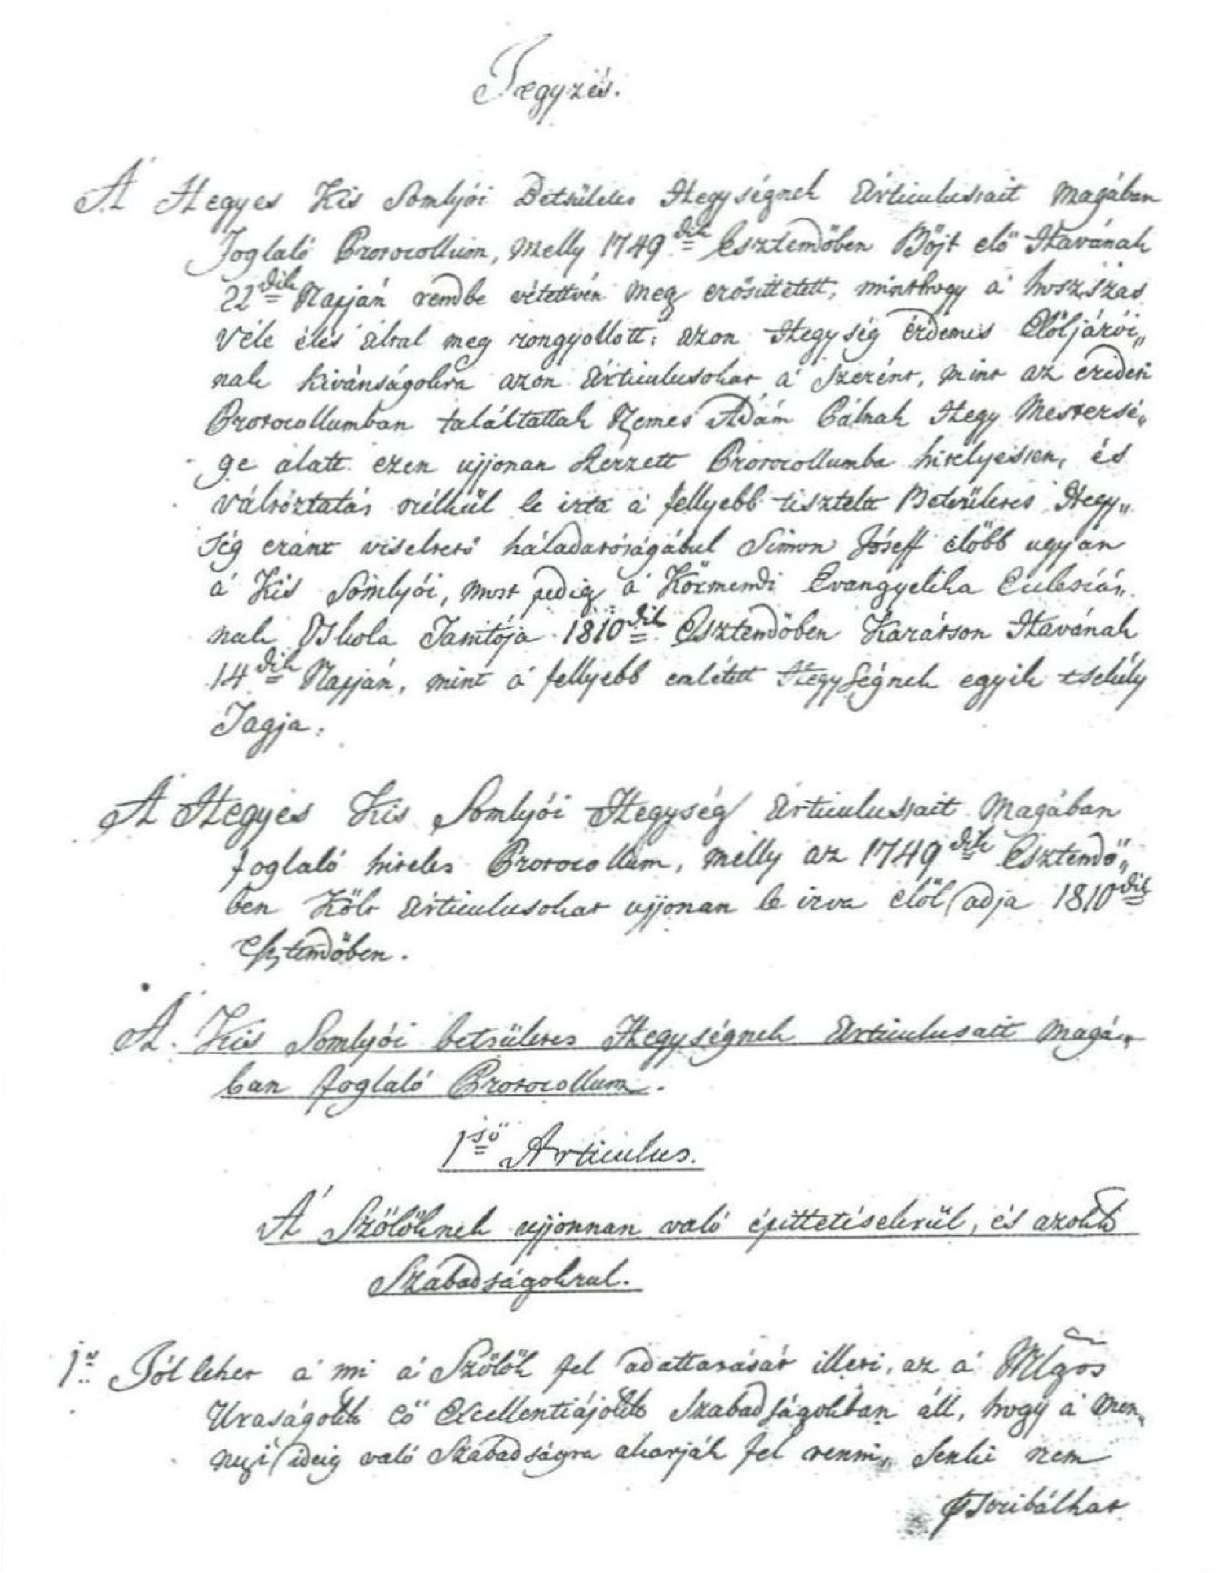 Jegyzés.
A' Hegyes Kis Somlyói Betsületes Hegységnek Articulussait magában
foglaló Protocollum, melly 1749dik Esztendőben Böjt elő Havának
22dik Napján rendbe vétettvén meg erősittetett, minthogy a' hoszszas
véle élés által meg rongyollott: azon Hegység érdemes Elöljárói„
nak kivánságokra azon Articulusokat a' szerént, mint az eredeti
Protocollumban találtattak Nemes Ádám Pálnak Hegy Mestersé„
ge alatt ezen ujjonan szerzett Protocollumba hitelyessen, és
változtatás nélkül le irta a' fellyebb tisztelt Betsületes Hegy„
ség eránt viseltető háladatosságábul Simon Jóseff előbb ugyan
a' Kis Somlyói, most pedig a' Körmendi Evangyelika Ecclesiá„
nak Oskola Tanitója 1810dik Esztendőben Karátson Havának
14dik Napján, mint a' fellyebb emlétett Hegységnek egyik tsekély
Tagja.
A' Hegyes Kis Somlyói Hegység Articulussait Magában
foglaló hiteles Protocollum, melly az 1749dik Esztendő„
ben Költ Articulusokat ujjonan le irva elöl adja 1810dik
Esztendőben.
A' Kis Somlyói betsületes Hegységnek Articulusait magá„
ban foglaló Protocollum.
1ső Articulus.
A' Szőlőknek ujjonnan való épittetésekrül, és azok
Szabadságokrul.
1ör Jól lehet a' mi a' Szőlők fel adattatását illeti, az a' Mlgos
Uraságok eő Excellentiájok Szabadságokban áll, hogy a' men„
nyi ideig való Szabadságra akarják fel venni, senki nem